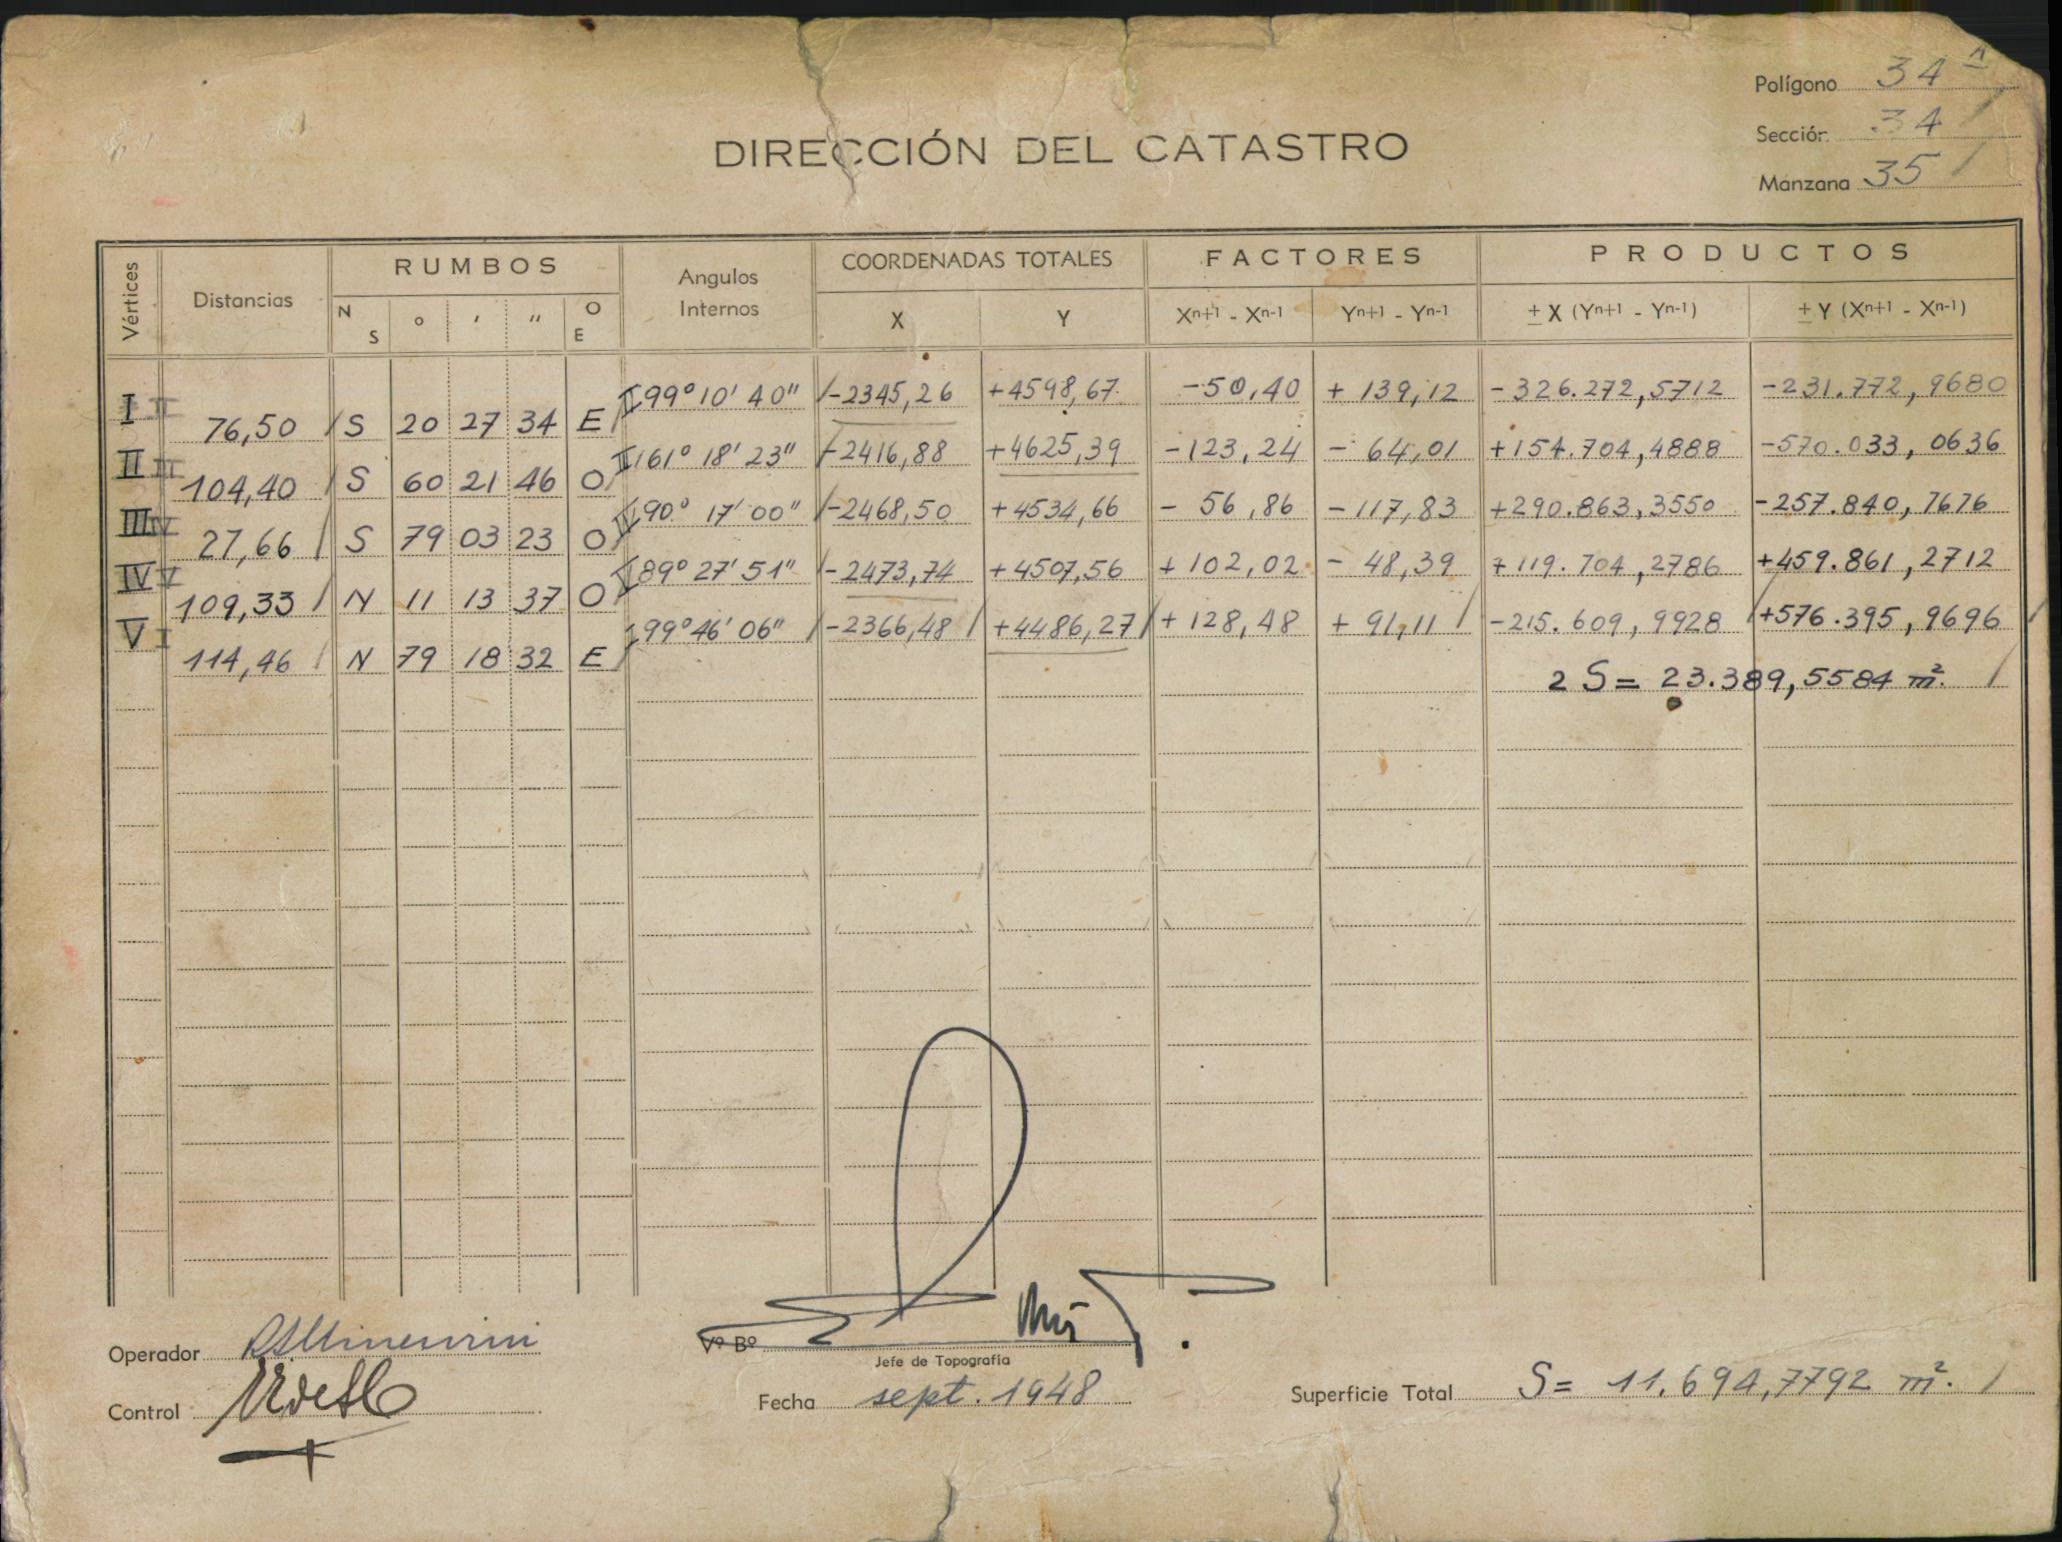 Polígono 34 A
Sección 34
Manzana 35
DIRECCIÓN DEL CATASTRO
Vértices Distancias RUMBOS Angulos Internos COORDENADAS TOTALES FACTORES PRODUCTOS
N S ° ' " O E X Y Xn+1 - Xn-1 Yn+1 - Yn-1 ± X (Yn+1 - Yn-1) ± Y (Xn+1 - Xn-1)
I II 99° 10' 40" -2345,26 +4598,67 -50,40 + 139,12 -326.272,5712 -231.772,9680
76,50 S 20 27 34 E
II III 161° 18' 23" -2416,88 +4625,39 -123,24 - 64,01 +154.704,4888 -570.033,0636
104,40 S 60 21 46 O
III IV 90° 17' 00" -2468,50 +4534,66 - 56,86 -117,83 +290.863,3550 -257.840,7676
27,66 S 79 03 23 O
IV V 89° 27' 51" -2473,74 +4507,56 + 102,02 - 48,39 +119.704,2786 +459.861,2712
109,33 N 11 13 37 O
V I 99° 46' 06" -2366,48 +4486,27 + 128,48 + 91,11 -215.609,9928 +576.395,9696
114,46 N 79 18 32 E
2 S = 23.389,5584 m².
Operador
Control
Vº Bº
Jefe de Topografía
Fecha sept. 1948
Superficie Total S = 11.694,7792 m².